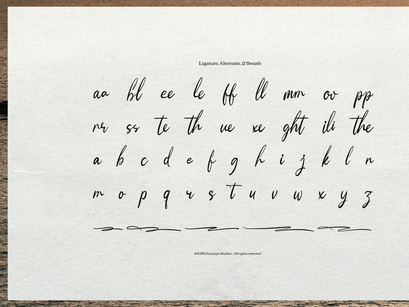 Ligature, Alternate, & Swash
aa bl ee le ff ll mm oo pp
nr ss te th ue xe ght ili the
a b c d e f g h i j k l n
m o p q r s t u v w x y z